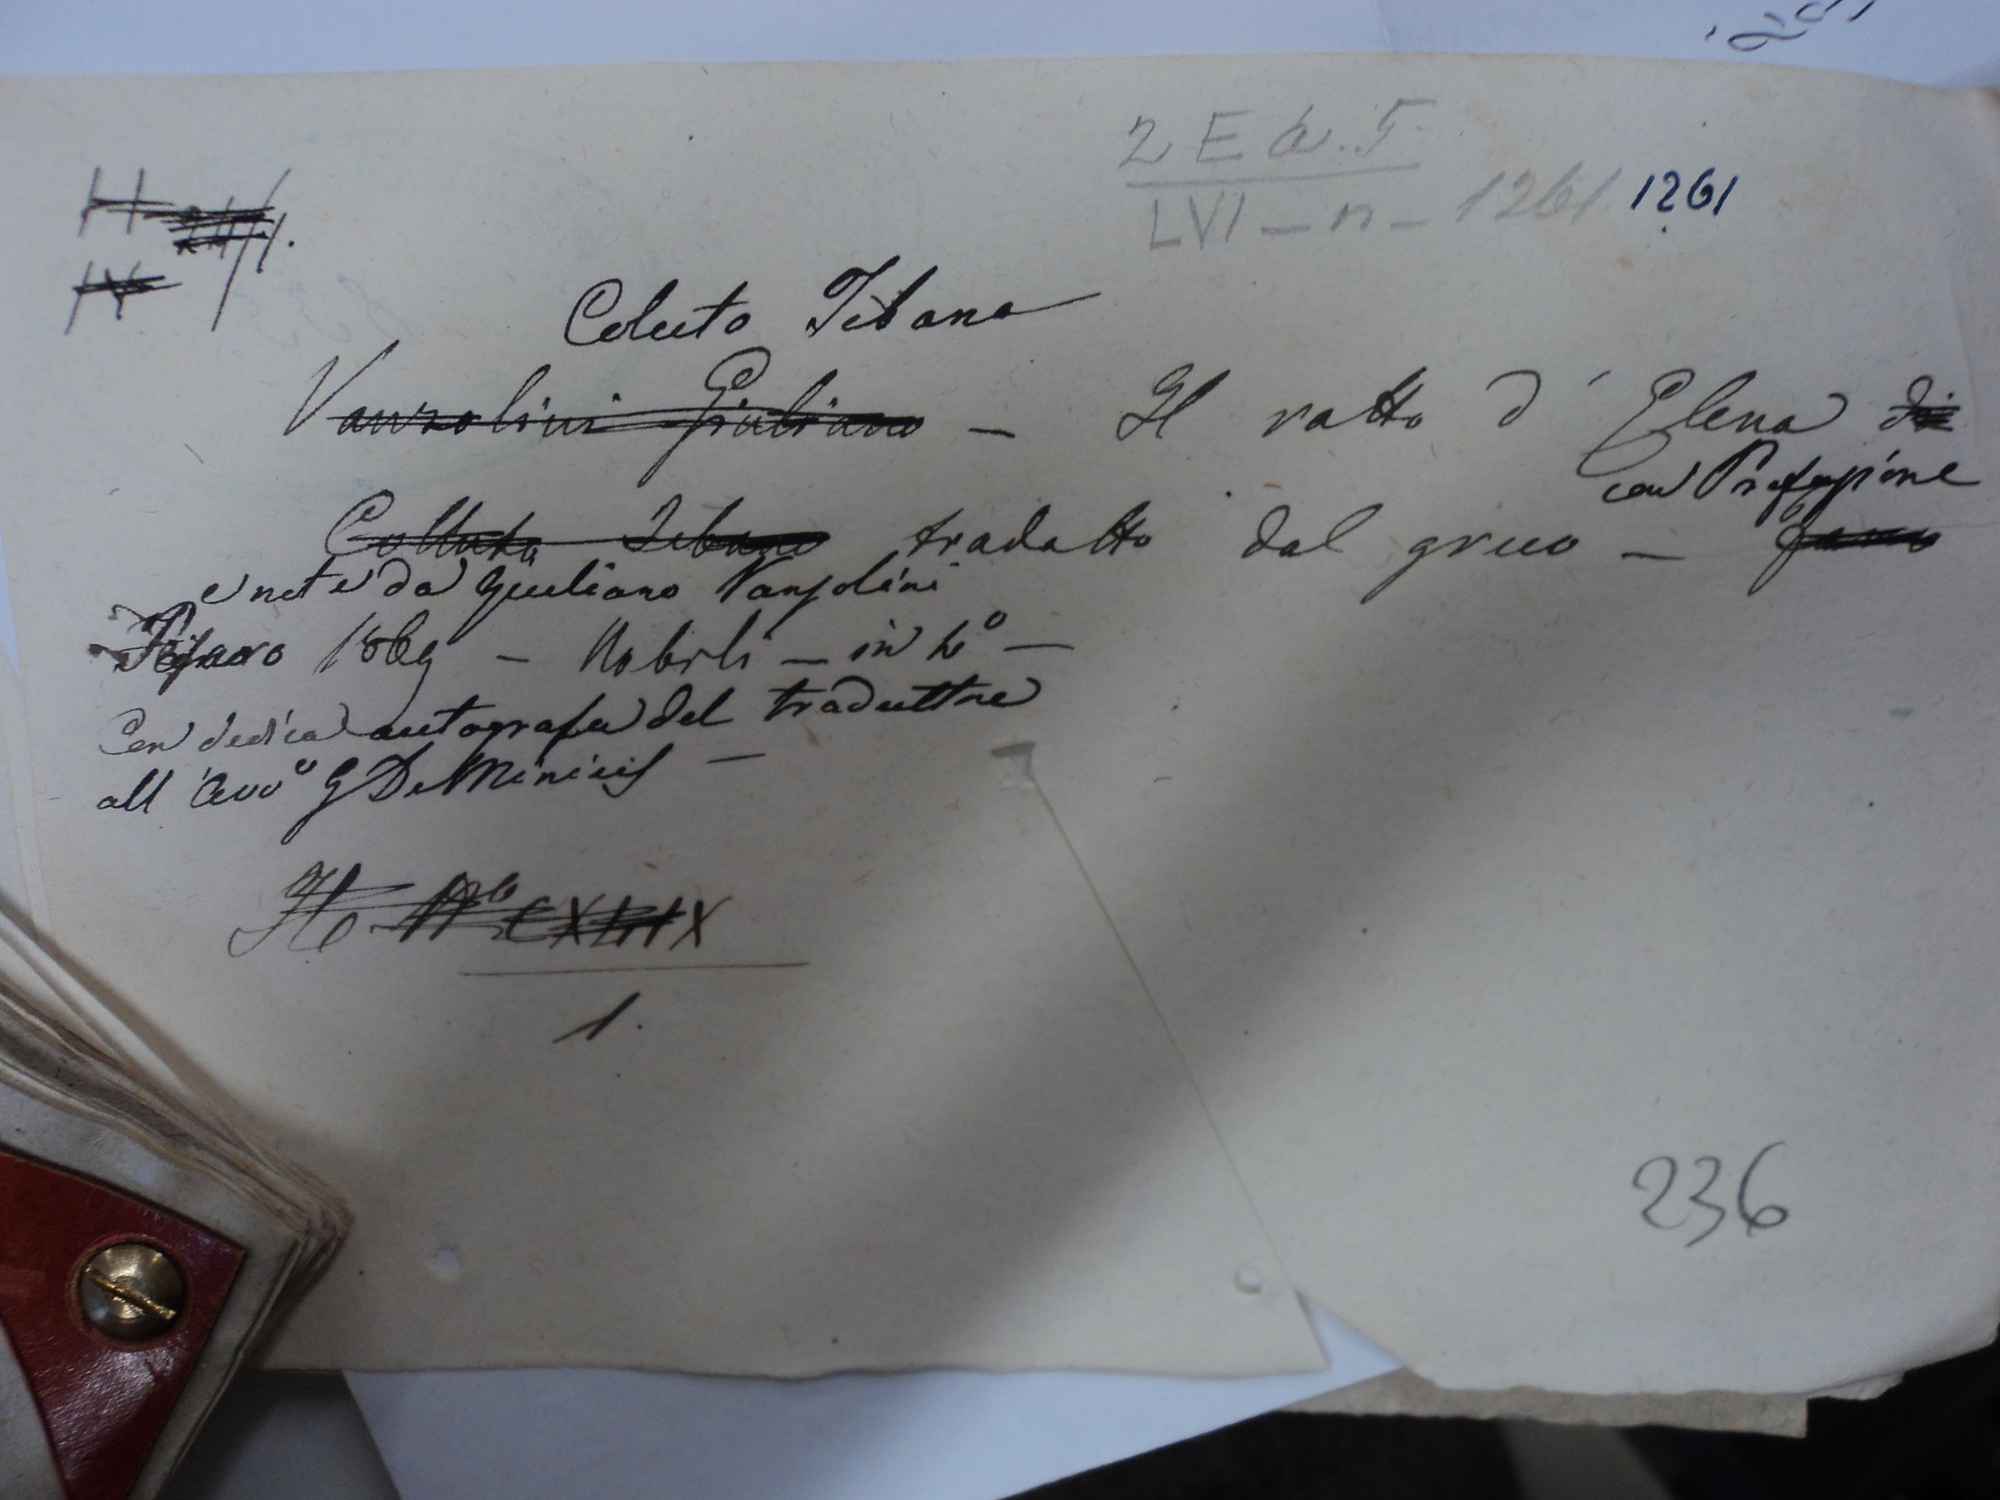 2 E a. 5
LVI - n - 1261 1261
Coluto Tebano
Vanzolini Giuliano - Il ratto d' Elena di
con Prefazione
Colluto Tebano tradotto dal greco -
e note da Giuliano Vanzolini
Pesaro 1869 - Nobili - in 4º -
Con dedica autografa del traduttore
all'Avvº G De Minicis -
CXLIX
1.
236